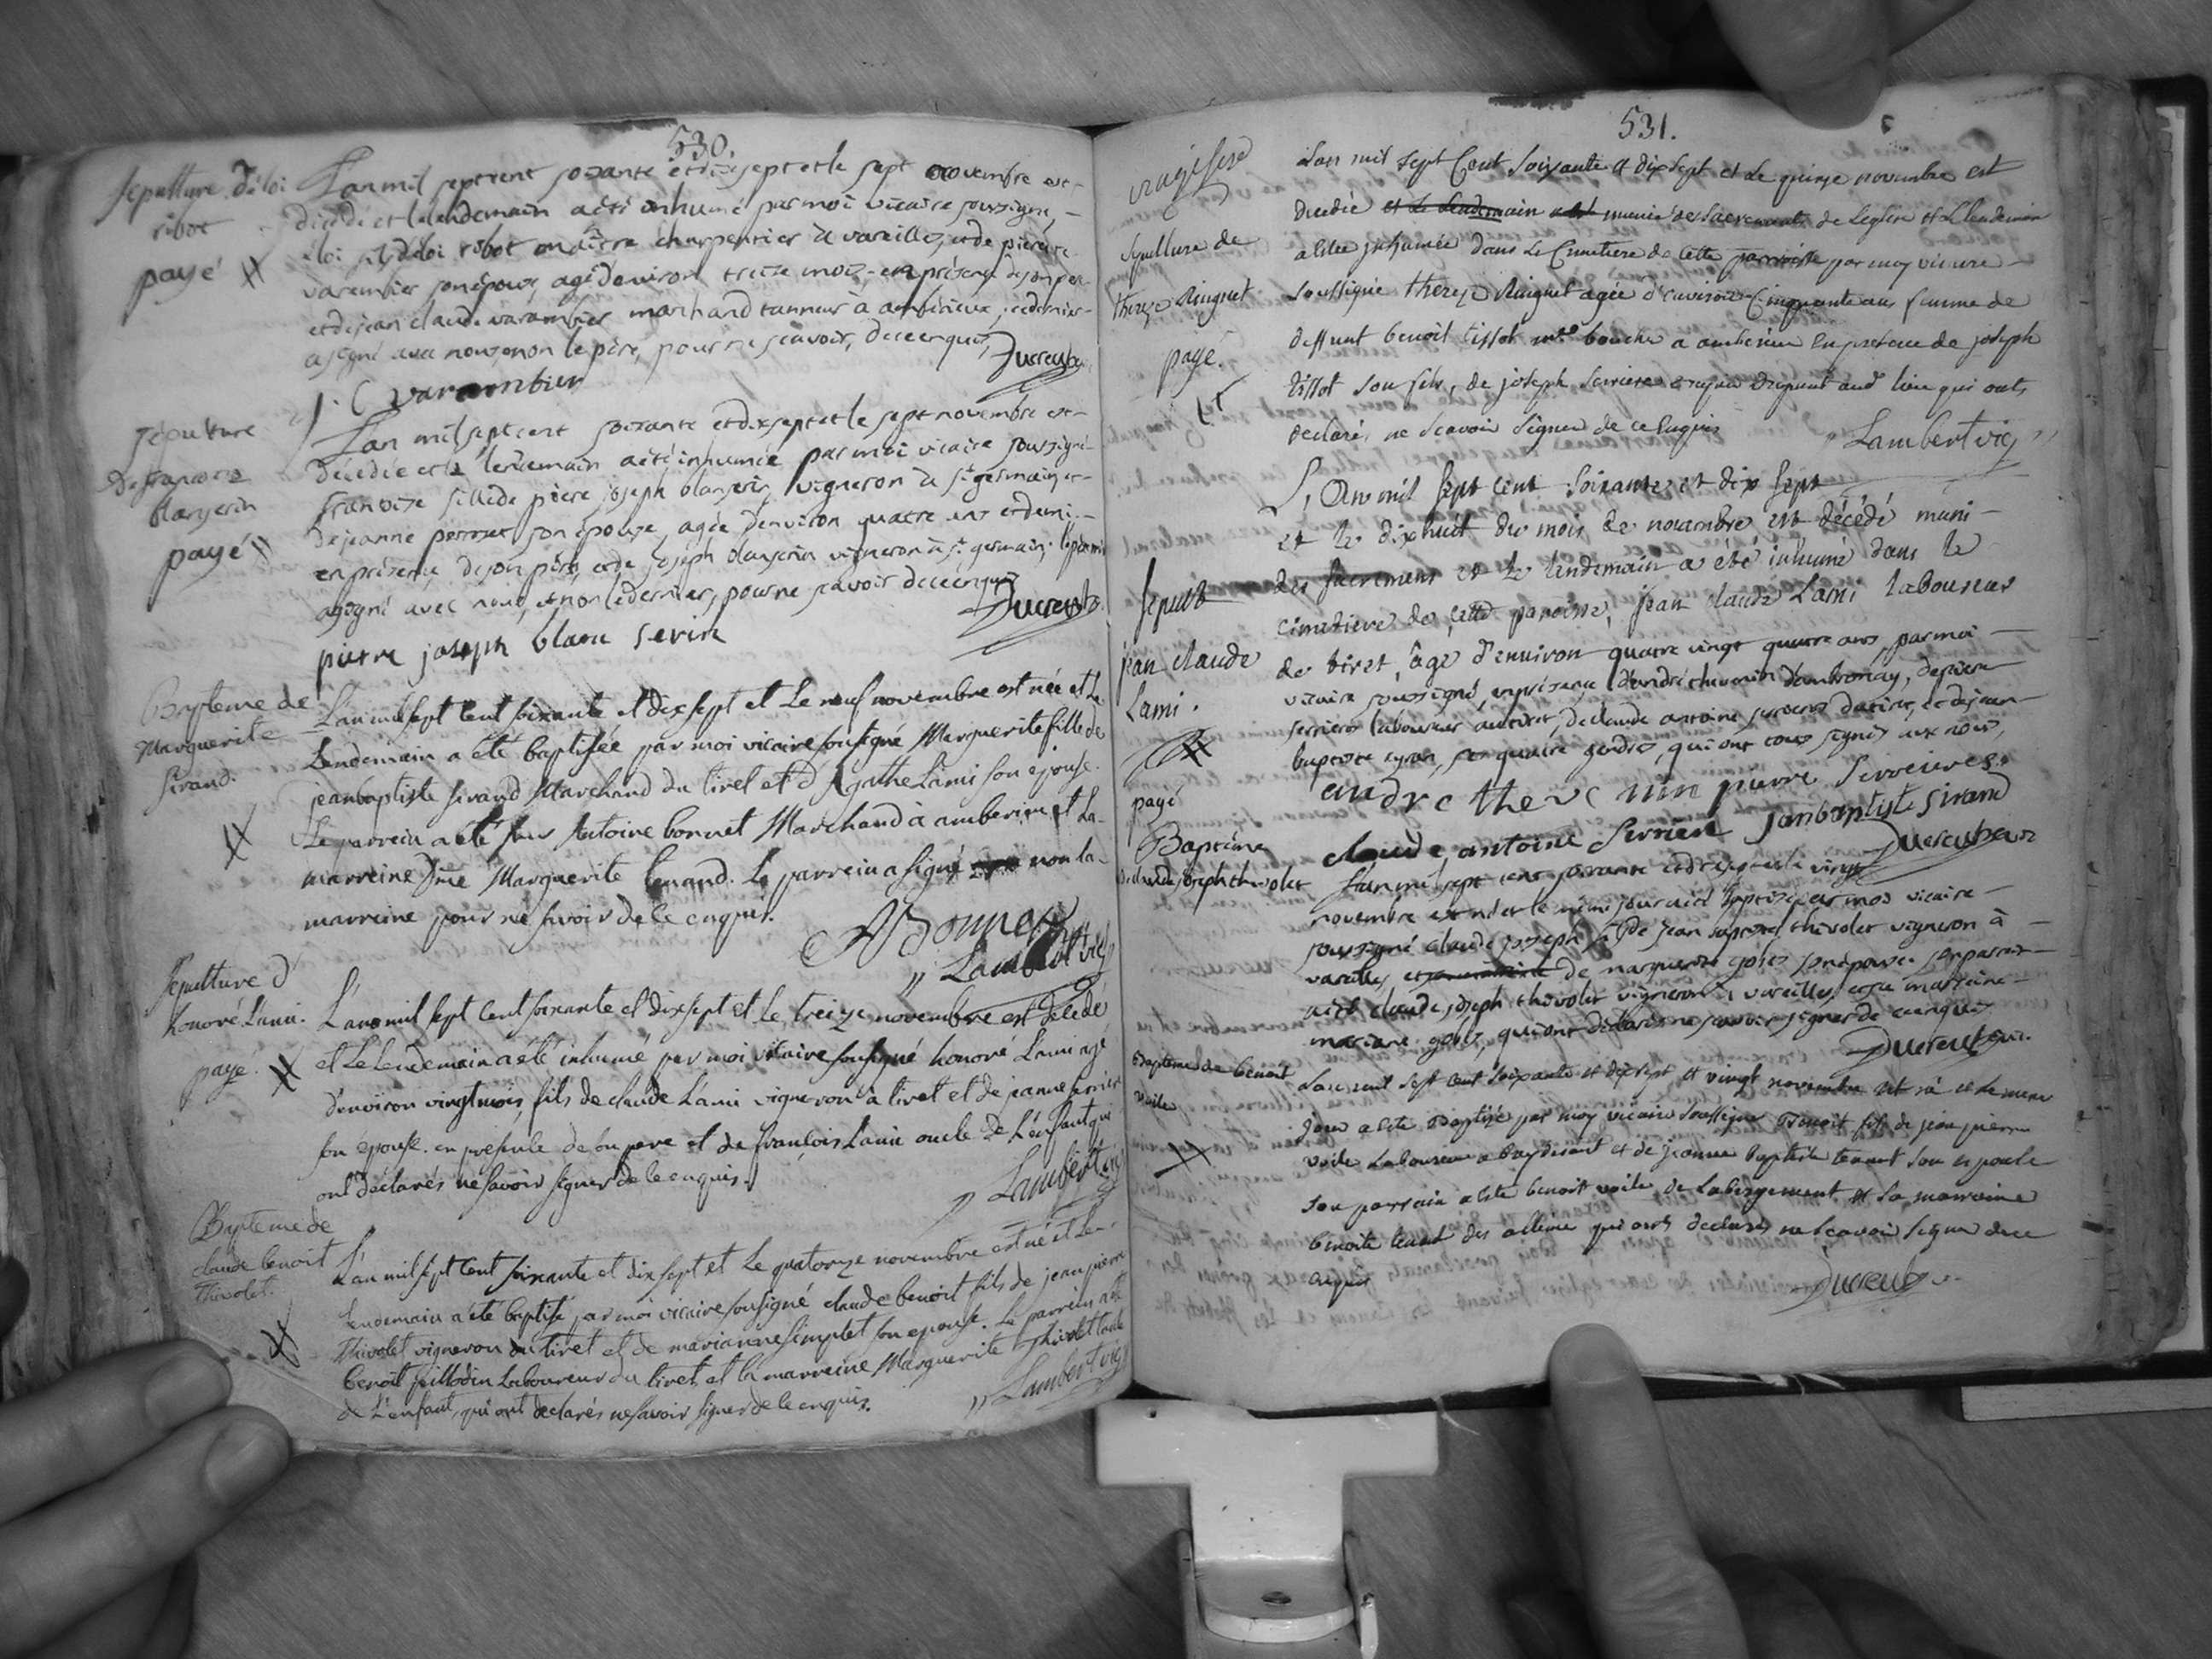 530.
sepulture d'éloi
ribot
payé
L'an mil sept cent soixante et dix sept et le sept novembre est
décédé et le lendemain a été inhumé par moi vicaire soussigné,
éloi fils d'éloi ribot maître charpentier à vareilles, et de pierrette
varembier son épouse, agé d'environ treize mois, en présence de son pere
et de jean claude varambier marchand tanneur à ambérieux, ce dernier
a signé avec nous, non le père, pour ne scavoir, de ce enquis,
J. C varambier
Ducreux
sépulture
de francoise
blanserin
payé
L'an mil sept cent soixante et dix sept et le sept novembre est
décédée et le lendemain a été inhumée par moi vicaire soussigné
francoise fille de pierre joseph blanserin vigneron à st germain et
de jeanne perret son épouse, agée d'environ quatre ans et demi
en présence de son père, et de joseph blanserin vigneron à st germain. le père
a signé avec nous, et non le dernier, pour ne scavoir de ce enquis
Ducreux
pierre joseph blanc serin
Bapteme de
Marguerite
Sirand.
L'an mil sept cent soixante et dix sept et le neuf novembre est née et le
lendemain a été baptisée par moi vicaire sousigné Marguerite fille de
jean baptiste sirand Marchand du tiret et d'Agathe Lami son epouse.
Le parrein a été sieur Antoine bonnet Marchand à amberieu et la
marreine Dme Marguerite tenand. Le parrein a signé non la
marreine pour ne savoir de ce enquis.
ABonnet
Lambert vic
Sepulture d'
honoré Lami.
payé.
L'an mil sept cent soixante et dix sept et le treize novembre est décédé
et le lendemain a été inhumé par moi vicaire sousigné honoré Lami agé
d'environ vingt mois, fils de claude Lami vigneron à tiret et de jeanne
son epouse. en presence de son pere et de françois Lami oncle de l'enfant qui
ont déclarés ne savoir signer de ce enquis.
Lambert vic
Bapteme de
claude benoit
Thivolet.
L'an mil sept cent soixante et dix sept et le quatorze novembre est né et le
lendemain a été baptisé par moi vicaire sousigné claude benoit fils de jean pierre
Thivolet vigneron du tiret et de marianne simplet son epouse. Le parrein a été
benoit Laboureur du tiret, et la marreine Marguerite Thivolet tante
de l'enfant, qui ont declarés ne savoir signer de ce enquis.
Lambert vic
531.
sepulture de
Thereze Ringuet
payé.
L'an mil sept cent soixante et dix sept et le quinze novembre est
decedée et le lendemain munie des sacrements de l'eglise et le lendemain
a été inhumée dans le cimetiere de cette parroisse par moy vicaire
soussigné thereze Ringuet agée d'environ cinquante ans femme de
deffunt benoit tissot boucher a amberieu en presence de joseph
tissot son fils, de joseph serriere dud lieu qui ont
declarés ne scavoir signer de ce enquis
Lambert vic
sepult
jean claude
Lami.
payé
L'an mil sept cent soixante et dix sept
et le dix huit du mois de novembre est décédé muni
des sacremens et le lendemain a été inhumé dans le
cimetiere de cette paroisse, jean claude Lami laboureur
de tiret, âgé d'environ quatre vingt quatre ans, par moi
vicaire soussigné, en présence d'andré thevenin d'ambronay, de pierre
serriere laboureur au tiret, de claude antoine serriere du tiret, et de jean
baptiste syran, ses quatre gendres, qui ont tous signés avec nous,
andre thevenin pierre serrieres
claude antoine serriere jan baptiste sirand
Ducreux vic
Baptême
de claude joseph thivolet
L'an mil sept cent soixante et dix sept et le vingt
novembre est né et le même jour a été baptisé par moi vicaire
soussigné claude joseph fils de jean baptiste thivolet vigneron à
vareilles, et de marguerite gobet son épouse. son parrain
a été claude joseph thivolet vigneron à vareilles et sa marraine
mariane gobet, qui ont déclarés ne scavoir signer de ce enquis
Ducreux vic.
Bapteme de benoit
voile
L'an mil sept cent soixante et dix sept et vingt novembre est né et le meme
jour a été baptisé par moy vicaire soussigné Benoit fils de jean pierre
voile Laboureur a et de jeanne baptiste tenant son epouse
son parrain a été benoit voile, de Labergement et sa marraine
benoite tenant des allime qui ont declarés ne scavoir signer de ce
enquis
Ducreux v.